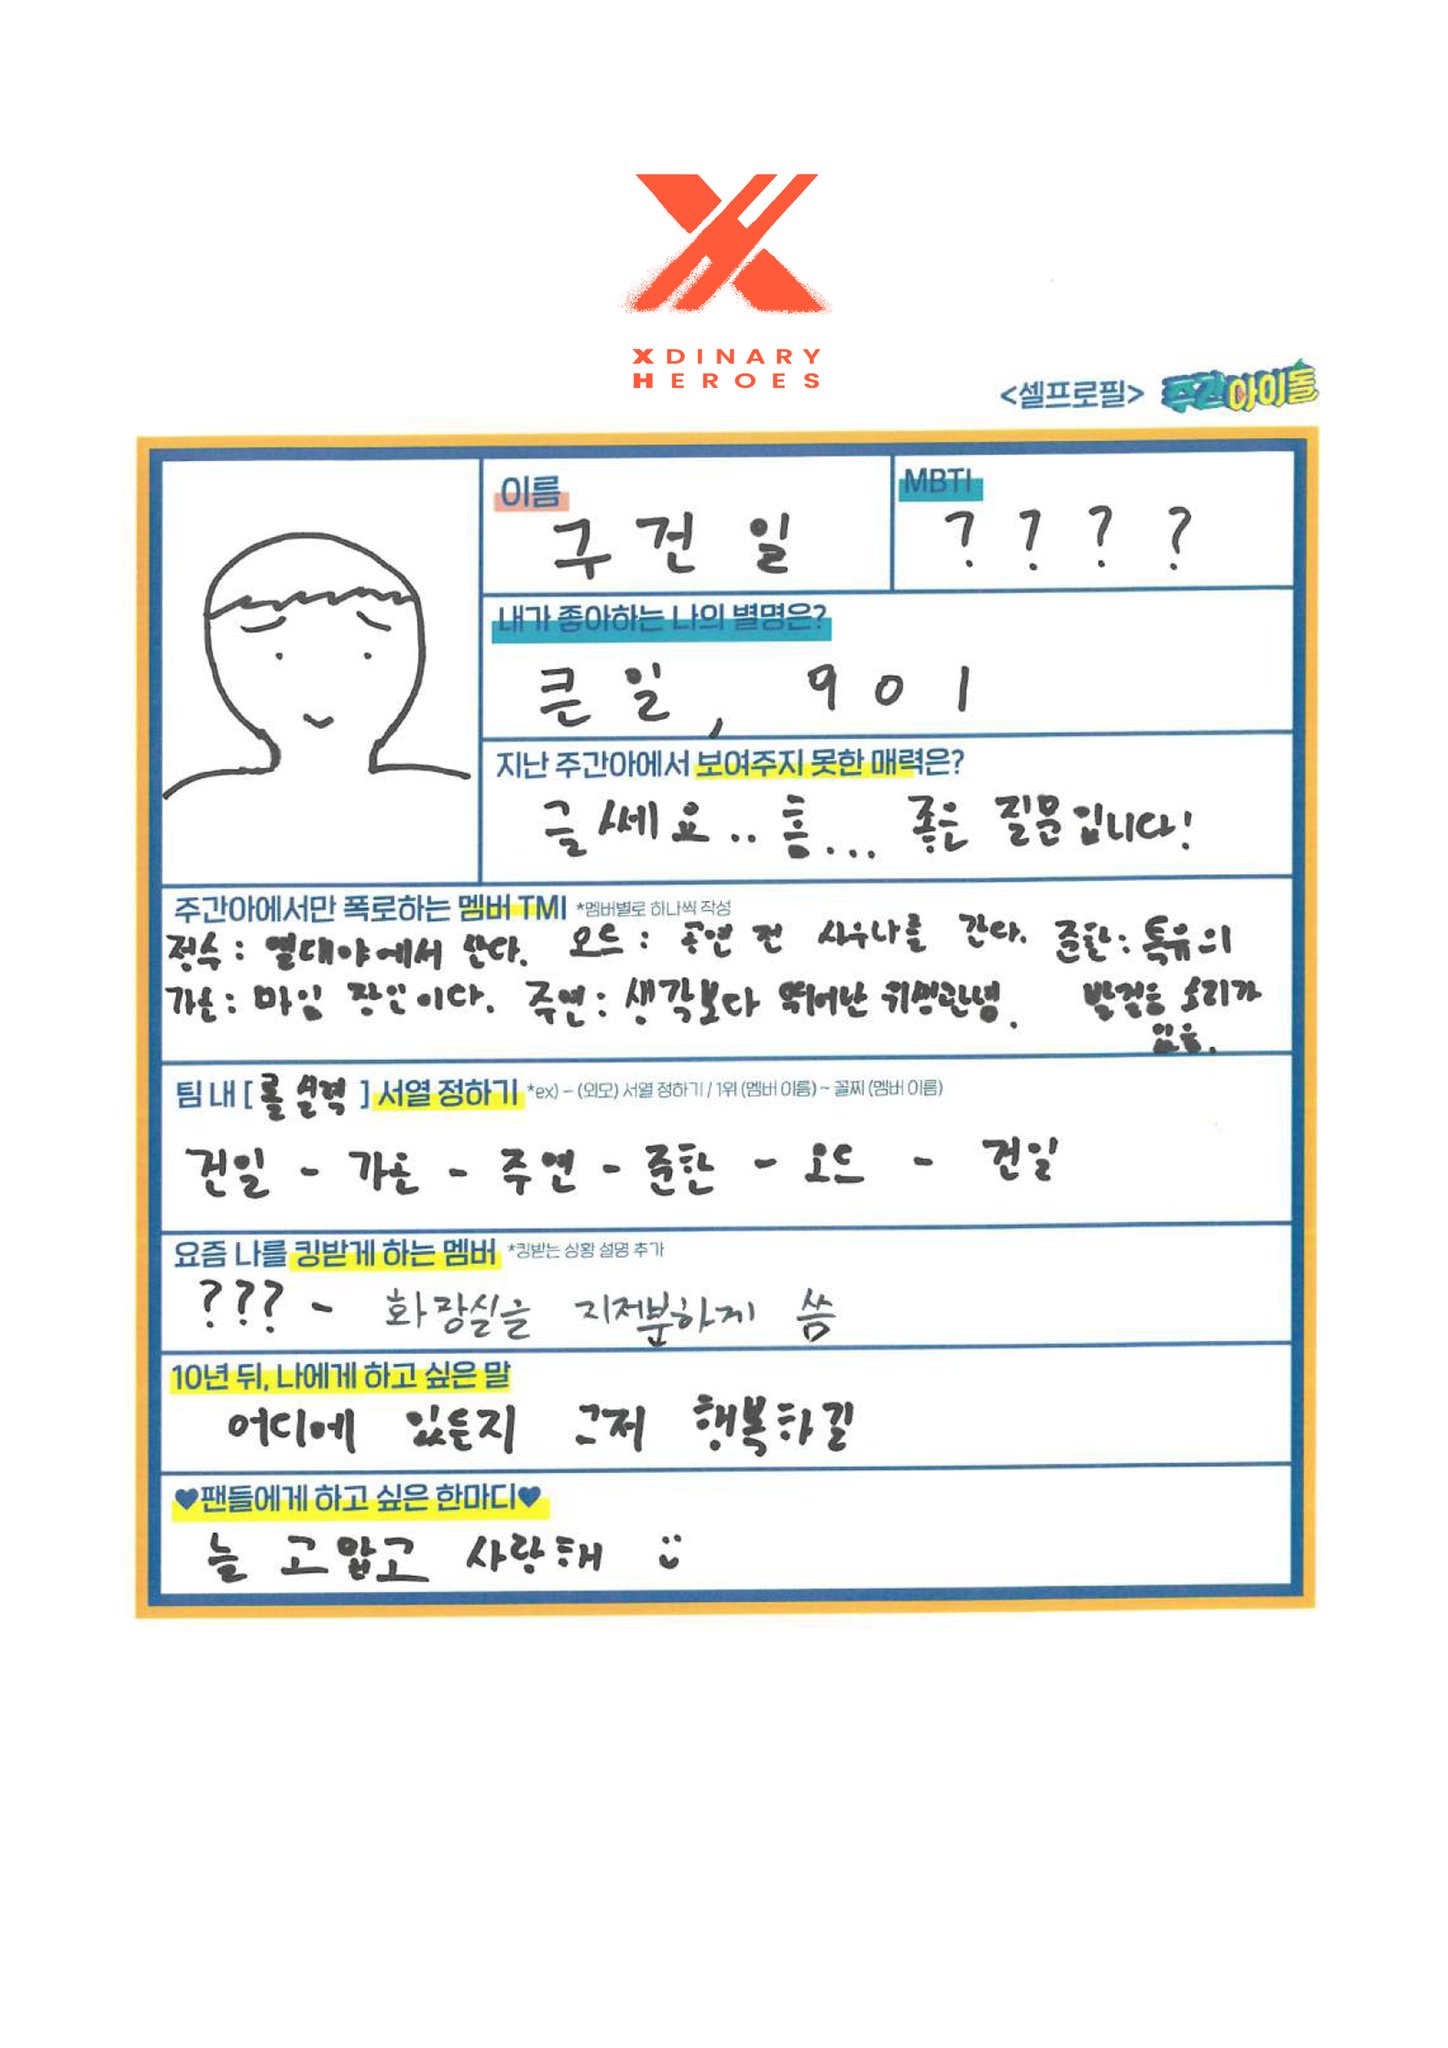 XDINARY
HEROES
<셀프로필> 주간아이돌
이름
구건일
MBTI
? ? ? ?
내가 좋아하는 나의 별명은?
큰일, 901
지난 주간아에서 보여주지 못한 매력은?
글쎄요.. 흠... 좋은 질문입니다!
주간아에서만 폭로하는 멤버 TMI *멤버별로 하나씩 작성
정수: 열대야에서 산다. 오드: 공연 전 사우나를 간다. 준한: 특유의
가온: 마임 장인이다. 주연: 생각보다 뛰어난 위생관념. 발걸음 소리가
있음.
팀 내 [롤 실력] 서열 정하기 *ex) – (외모) 서열 정하기 / 1위 (멤버 이름) ~ 꼴찌 (멤버 이름)
건일 - 가온 - 주연 - 준한 - 오드 - 건일
요즘 나를 킹받게 하는 멤버 *킹받는 상황 설명 추가
??? - 화장실을 지저분하게 씀
10년 뒤, 나에게 하고 싶은 말
어디에 있든지 그저 행복하길
♥팬들에게 하고 싶은 한마디♥
늘 고맙고 사랑해 :)